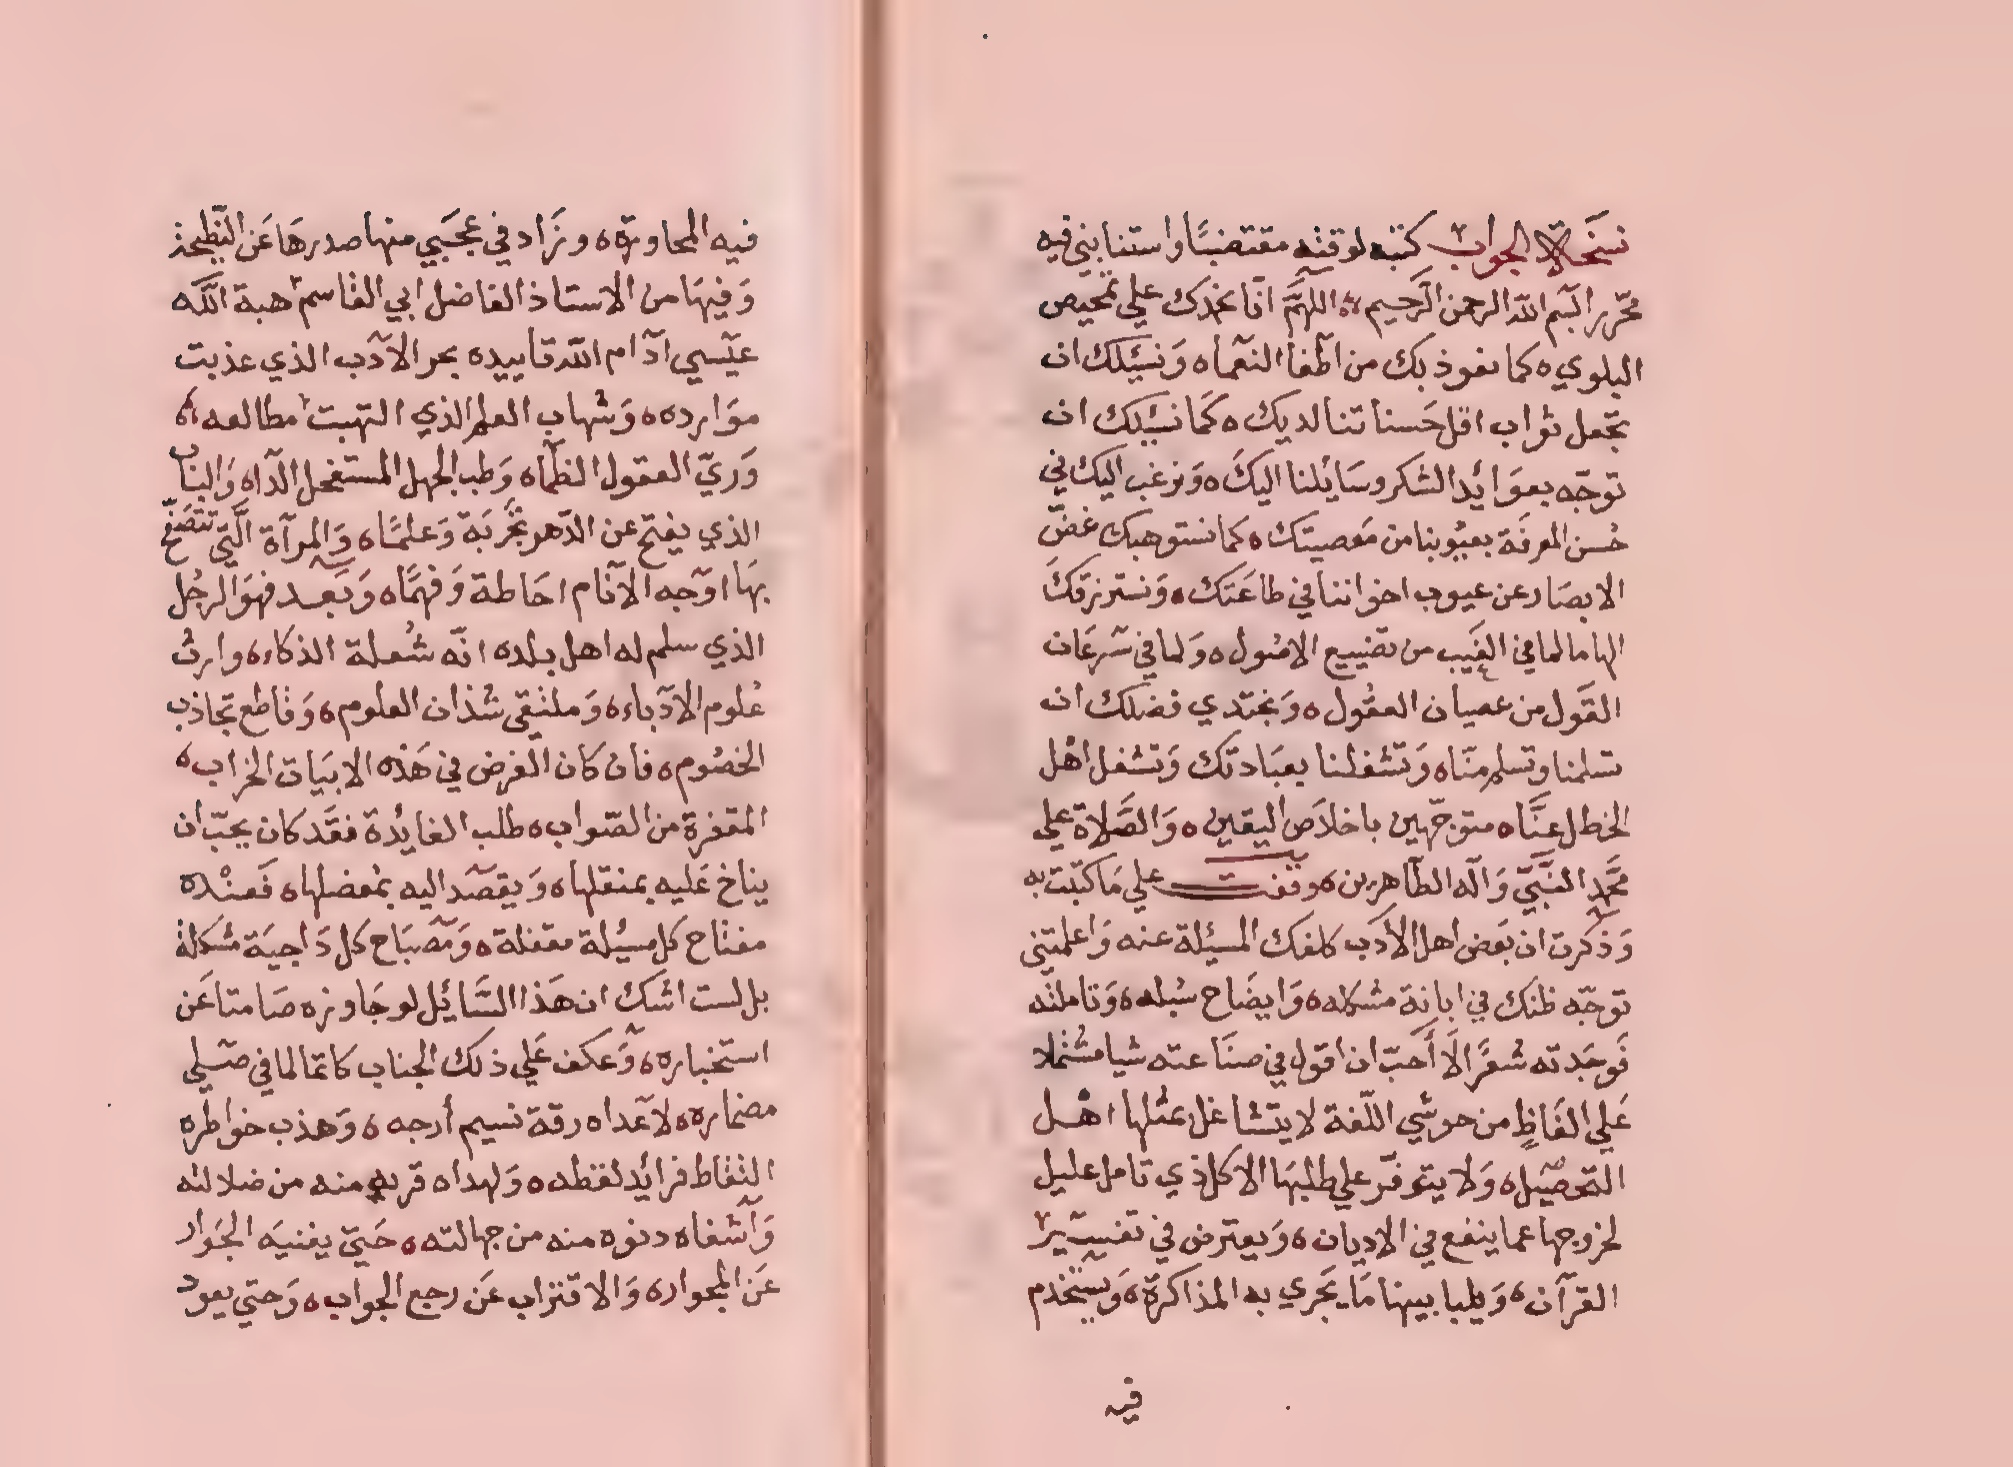 نسخة الجواب كتبه لوقته مقتضبًا واستنابني فيه
محرّر بسم الله الرحمن الرَّحيم اللهمَّ انّا نحمدك علي تمحيص
البلوي ه كما نعوذ بك من اطغا النعّما ه وَنسَئلك ان
تجعل ثواب اقل حَسناتنا لديك ه كَما نسَئلك ان
توجّه بعوَائد الشكر وسَائلنا اليكَ ه وَنرغب اليك في
حُسن المعرفَة بعيُوبنا من مَعصيتك ه كما نستوهبك غضّ
الابصَار عن عيوب اخواننا في طاعَتك ه وَنسترزقكَ
الهاما لما في الغَيب من تضييع الاصُول ه وَلما في سَرعَان
القَول من عصيان العقُول ه وَنجتدي فضلك ان
تسلمنا وتسلم منّاه وَتشغلنا بعبَادتك وَتشغل اهْل
الخطل عنَّا ه متوجّهين باخلاَص اليقين ه وَالصَّلاة علي
محَّمد النَّبيَّ وَآله الطّاهرين ه وقفت علي مَا كتبت به
وَذكرت ان بَعض اهل الأدَب كلفك المسئلة عنه وَاعلمتني
توجّه ظنك في ابانة مشكله ه وَايضَاح سُبله ه وَتاملته
فَوجَدته شعرًا الَا أحَبّ ان اقول في صنَاعته شيا مشتملا
عَلي الفَاظٍ من حوشي اللّغة لا يتّشاغل بمثلها اهْل
التحصيّل ه وَلا يتوفّر علي طلبهَا الا كل ذي تامل عليل
لخروجها عما ينفع في الاديان ه وَيعترض في تفسّير
القرآن ه وَيلبا بينها مَا يَجري به المذاكرة ه وَيستخدم
فيه
فيه المحاورة ه وزَاد في عجَبي منها صدرهَا عَن
وَفيهَا من الاستاذ الفاضل ابي القاسم هبة اللَّه
عيّسي ادَام الله تاييده بحر الادَب الذي عذبت
موَارده ه وَشهاب العلم الذي التهبت مطالعه ه
وَريّ العقول الظمآه وَطب الجهل المستفحل الدّاه وَالبناب
الذي يفتح عن الدّهر تجَربَة وَعلمًا ه وَالمرآة الَّتي تتصَفّح
بهَا اوّجه الآنام احَاطة وَفهمًا ه وَبَعد فهوَ الرجُل
الذي سلم له اهل بلده انّه شُعلة الذكاء ه وارث
عُلوم الادَباء ه وَملتقي شذان العلوم ه وَقاطع تجَاذب
الخصُوم ه فان كان الغرض في هَذه الابيَات الخراب ه
المقفرة من الصّواب ه طلب الفائدة فقَد كان يجبّ ان
يناخ عَليه بمثقلها ه وَيقصّد اليه بمُعضلها ه فَعنْده
مفتاح كل مسئلة مقفلة ه وَمصّبَاح كل دَاجيَة مشكلة
بل لست اشك ان هَذا السَّائل لو جَاوزه صَامتا عَن
استخباره ه وَعكف عَلي ذلك الجناب كاتما لما في
مضماره ه لاعَداه رقة نسيم أرجه ه وَهذب خواطره
التقاط فرائد لفظه ه وَلهداه قربه منه من ضلالته
وَآشفاه دنوه منه من جهالته ه حَتيّ يغنيَه الجَوار
عَن المحوار ه وَالاقتراب عَن رجع الجواب ه وَحتي يعود